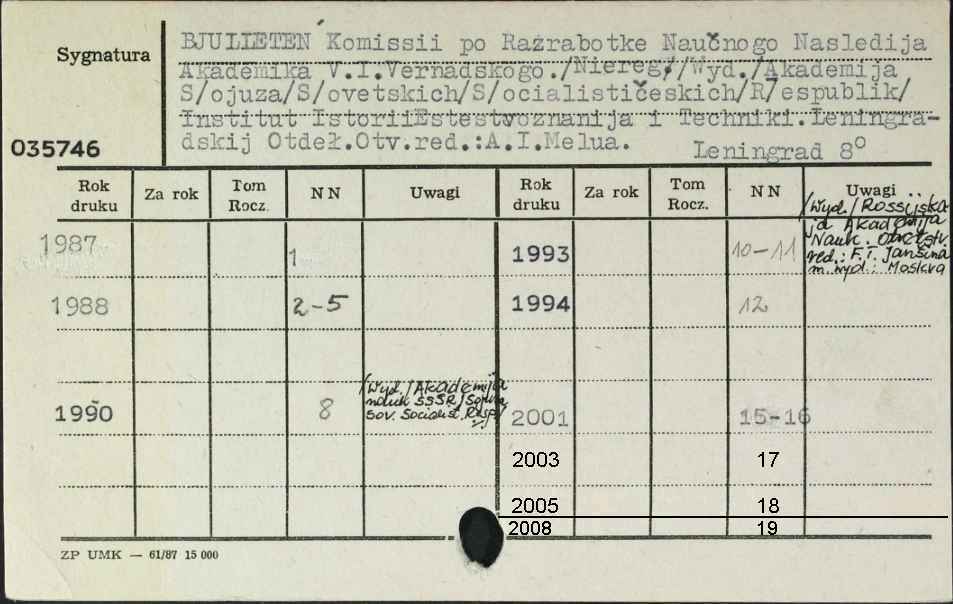 Sygnatura
035746
BJULLETEŃ Komissii po Razrabotke Naučnogo Nasledija
Akademika V.I.Vernadskogo./Niereg//Wyd./Akademija
S/ojuza/S/ovetskich/S/ocialističeskich/R/espublik/
Institut IstoriiEstestvoznanija i Techniki.Leningra-
dskij Otdeł.Otv.red.:A.I.Melua.
Leningrad 8°
Rok druku Za rok Tom Rocz. N N Uwagi Rok druku Za rok Tom Rocz. N N Uwagi
1987 1 1993 10-11
/Wyd./Rossijska-
ja Akademija
Nauk. Otvetstv.
red.: F.T. Janšina
m. wyd.: Moskva
1988 2-5 1994 12
1990 8
/Wyd./Akademija
nauk SSSR/Sojuza
Sov. Socialist. Resp/
2001 15-16
2003 17
2005 18
2008 19
ZP UMK — 61/87 15 000